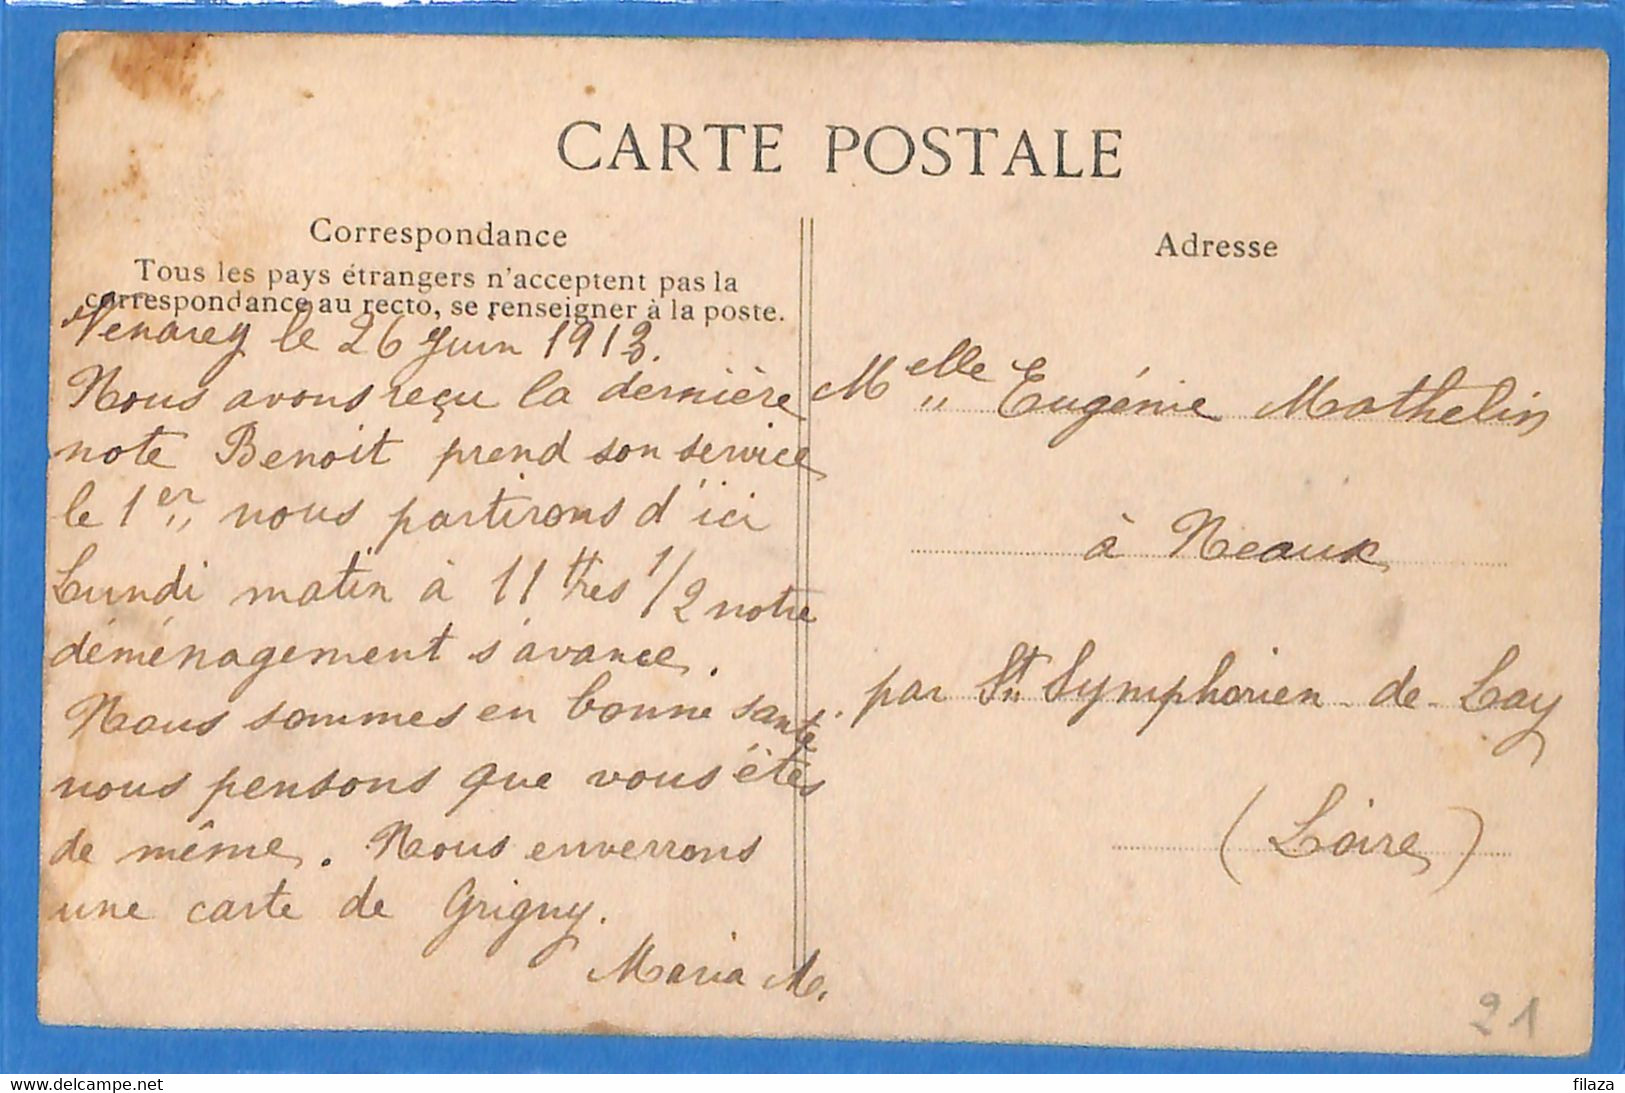 CARTE POSTALE
Correspondance
Tous les pays étrangers n'acceptent pas la
correspondance au recto, se renseigner à la poste.
Venarey le 26 Juin 1913.
Nous avons reçu la dernière
note Benoit prend son service
le 1er,, nous partirons d'ici
Lundi matin à 11 Hres 1/2 notre
déménagement s'avance.
Nous sommes en bonne santé
nous pensons que vous êtes
de même. Nous enverrons
une carte de Grigny.
Maria M.
Adresse
Melle Eugénie Mathelin
à Neaux
par St Symphorien-de-Lay
(Loire)
21
delcampe.net
filaza